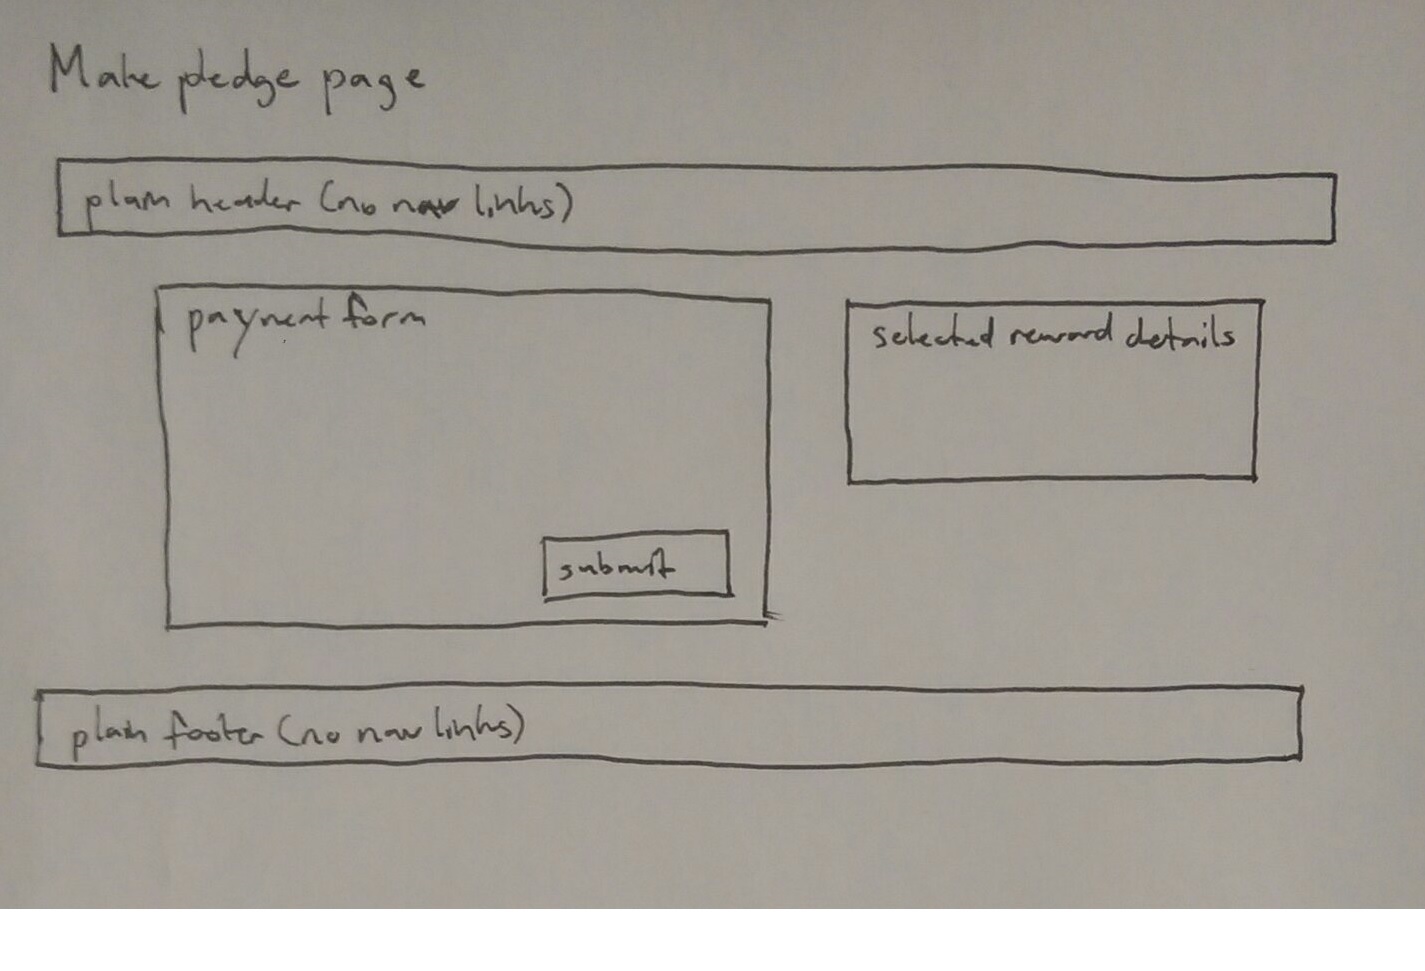 Make pledge page
plain header (no nav links)
payment form
selected reward details
submit
plain footer (no nav links)